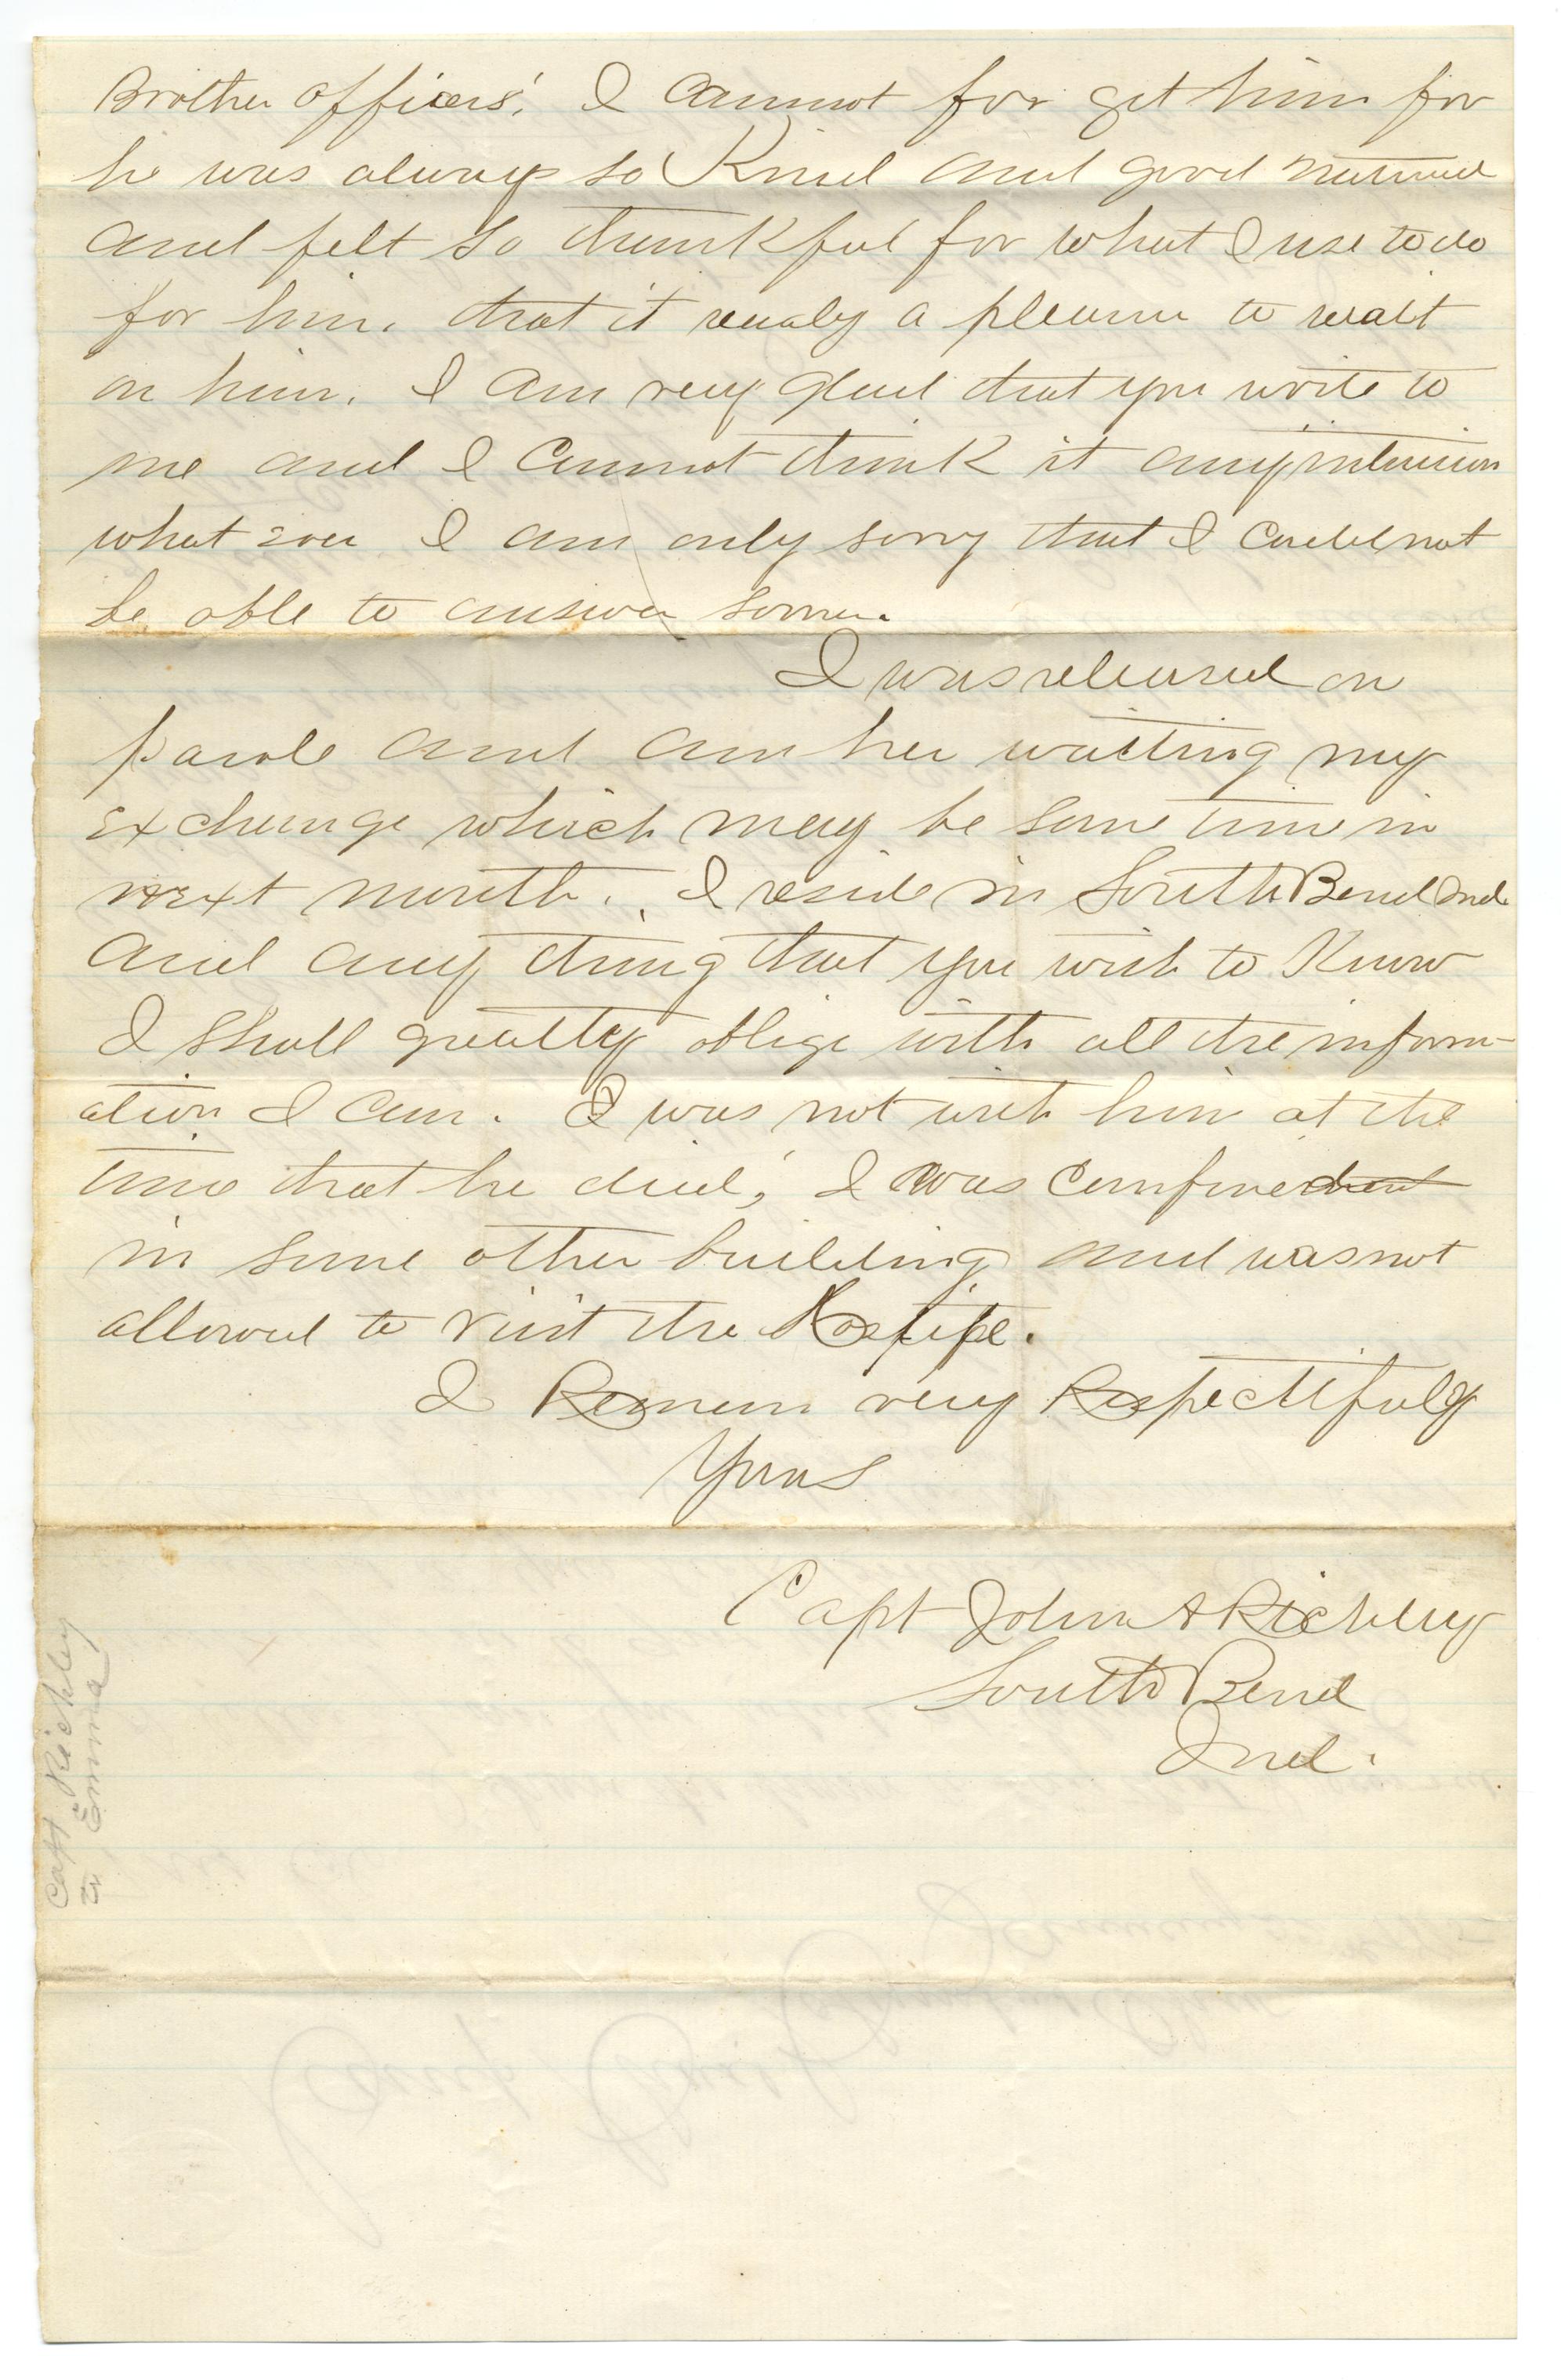 Brother officers'. I cannot for get him for
he was always so Kind and good natured
and felt so thankful for what I use to do
for him. that it realy a pleasure to wait
on him. I am very glad that you write to
me and I Cannot think it any intrusion
what ever I am only sorry that I Could not
be able to answer sooner.
I was released on
parole and am her waiting my
exchange which may be some time in
next month. I reside in South Bend Ind.
and any thing that you wish to Know
I shall greatly oblige with all the inform-
ation I can. I was not with him at the
time that he died; I was Confined
in some other building and was not
allowed to visit the
I Remain very Respectifuly
Yours
Capt John A Richley
South Bend
Ind.
Capt. Richley
to Emma